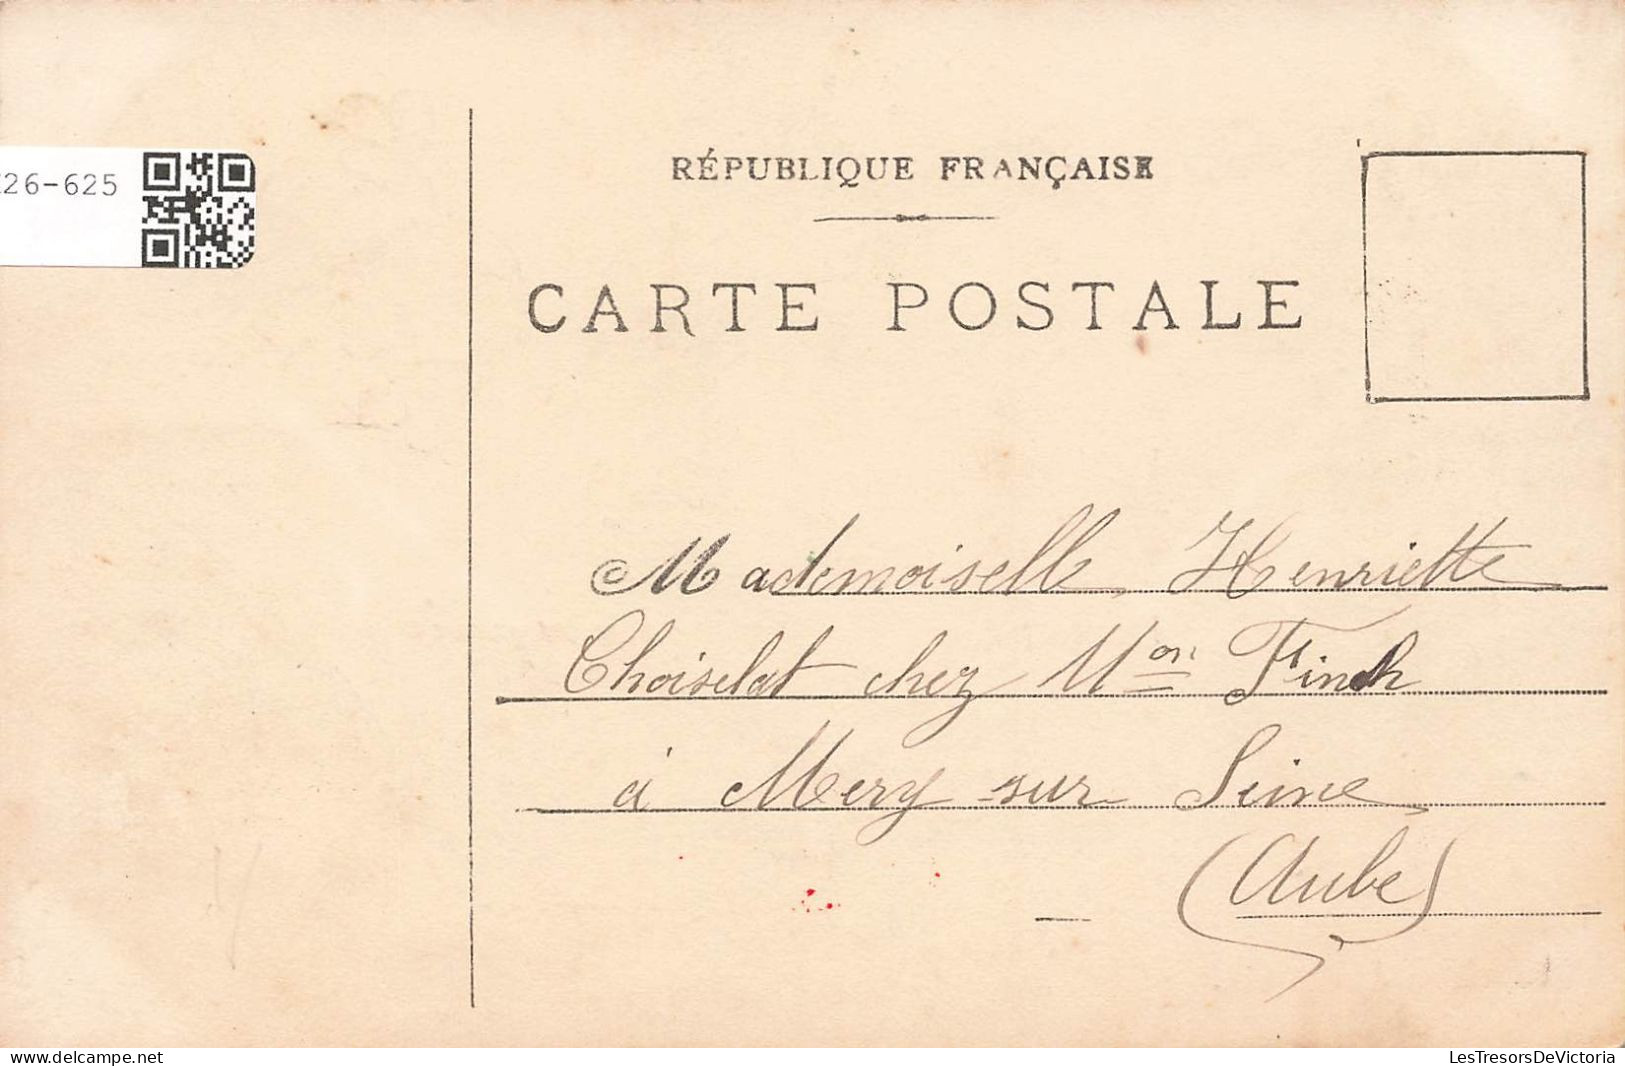 26-625
RÉPUBLIQUE FRANÇAISE
CARTE POSTALE
Mademoiselle Henriette
Choiselat chez Mon Finch
à Mery sur Seine
(Aube)
delcampe.net
LesTresorsDeVictoria